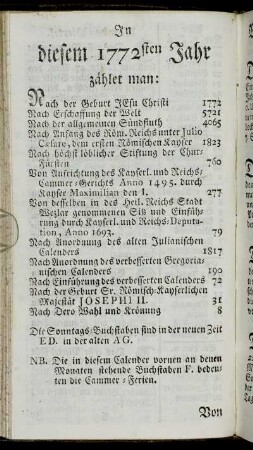 In
diesem 1772sten Jahr
zählet man:
Nach der Geburt JEsu Christi 1772
Nach Erschaffung der Welt 5721
Nach der allgemeinen Sündfluth 4065
Nach Anfang des Röm. Reichs unter Julio
Cæsare, dem ersten Römischen Kayser 1823
Nach höchst löblicher Stiftung der Chur-
Fürsten 760
Von Aufrichtung des Kayserl. und Reichs-
Cammer-Gerichts Anno 1495. durch
Kayser Maximilian den I. 277
Von desselben in des Heil. Reichs Stadt
Wezlar genommenen Sitz und Einfüh-
rung durch Kayserl. und Reichs-Deputa-
tion, Anno 1693. 79
Nach Anordnung des alten Julianischen
Calenders 1817
Nach Anordnung des verbesserten Gregoria-
nischen Calenders 190
Nach Einführung des verbesserten Calenders 72
Nach der Geburt Sr. Römisch-Kayserlichen
Majestät JOSEPHI II. 31
Nach Dero Wahl und Krönung 8
Die Sonntags-Buchstaben sind in der neuen Zeit
ED. in der alten AG.
NB. Die in diesem Calender vornen an denen
Monaten stehende Buchstaben F. bedeu-
ten die Cammer-Ferien.
Von